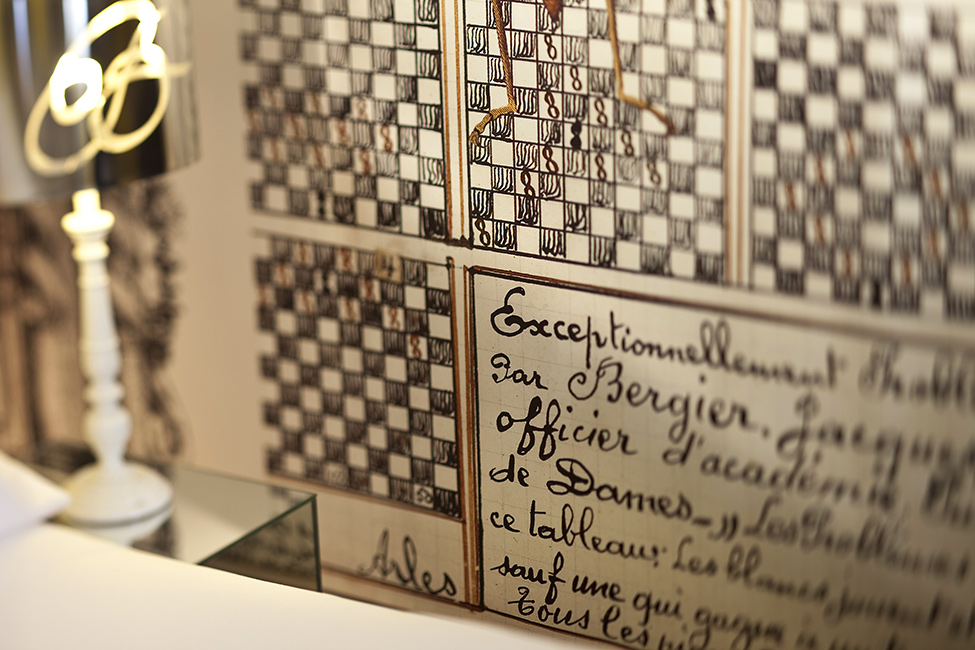 Exceptionnellement
Par Bergier, Jacques
officier d'académie
de Dames_ " Les Problèmes
ce tableau: Les blancs jouent
sauf une qui gagne
Tous les
Arles